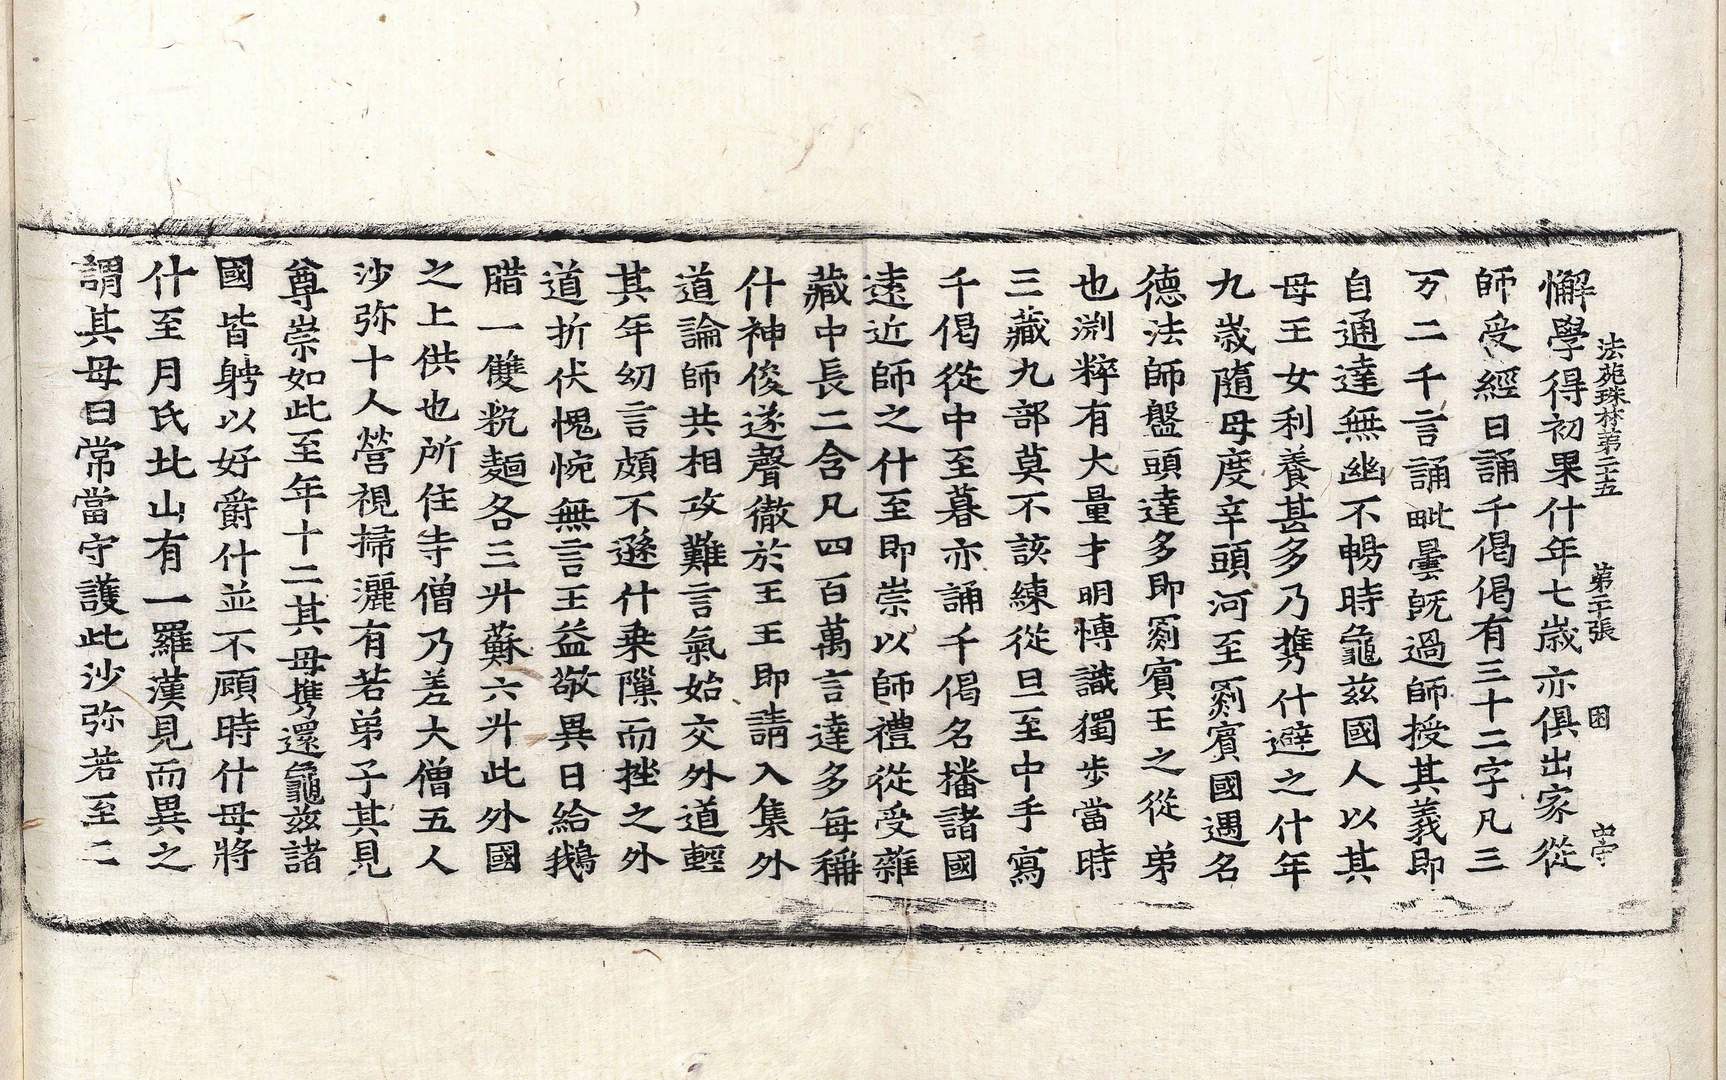 法苑珠林第二十五　第二十張　困　守
懈學得初果什年七歳亦俱出家從
師受經日誦千偈偈有三十二字凡三
万二千言誦毗曇旣過師授其義即
自通達無幽不暢時龜茲國人以其
母王女利養甚多乃携什避之什年
九歳隨母度辛頭河至罽賓國遇名
德法師盤頭達多即罽賓王之從弟
也渕粹有大量才明愽識獨歩當時
三藏九部莫不該練從旦至中手寫
千偈從中至暮亦誦千偈名播諸國
遠近師之什至即崇以師禮從受雜
藏中長二含凡四百萬言達多每稱
什神俊遂聲徹於王王即請入集外
道論師共相攻難言氣始交外道輕
其年幼言頗不遜什乗隟而挫之外
道折伏愧惋無言王益敬異日給鵝
腊一雙秔麺各三升蘇六升此外國
之上供也所住寺僧乃差大僧五人
沙弥十人營視掃灑有若弟子其見
尊崇如此至年十二其母携還龜茲諸
國皆娉以好爵什並不顧時什母將
什至月氏北山有一羅漢見而異之
謂其母曰常當守護此沙弥若至二